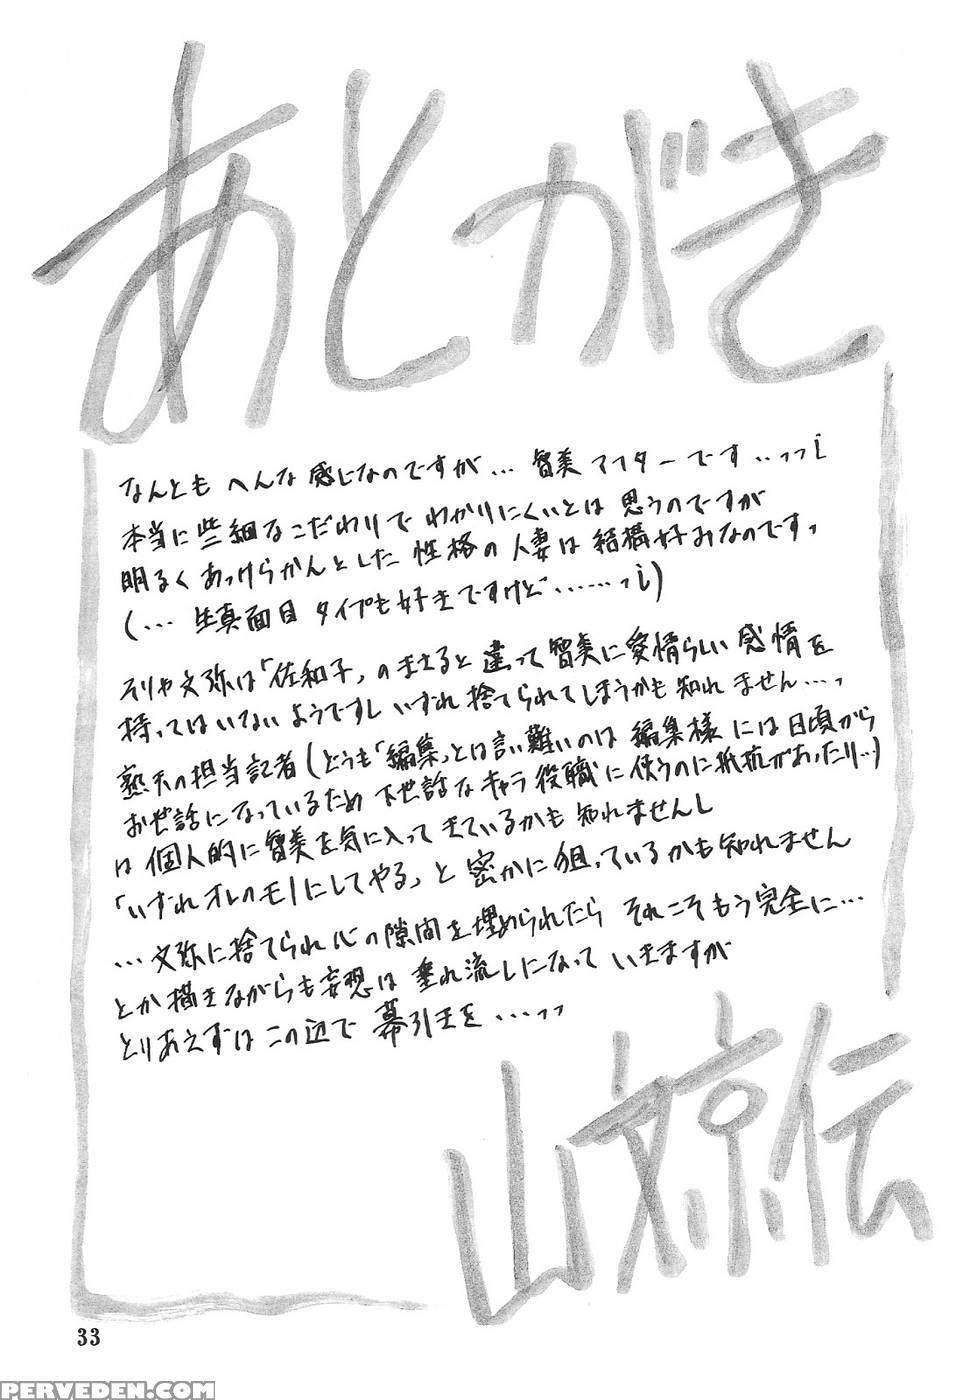 あとがき
なんとも へんな 感じなのですが… 智美アフターです…っっ；
本当に些細なこだわりで わかりにくいとは 思うのですが
明るく あっけらかんとした 性格の 人妻は 結構好みなのです、
(… 生真面目 タイプも好きですけど………っ；)
そりゃ文弥は「佐和子」のまさると違って智美に愛情らしい感情を
持ってはいないようですし いずれ捨てられてしまうかも知れません…、
熟天の担当記者(どうも「編集」とは言い難いのは 編集様には日頃から
お世話になっているため 下世話なキャラ役職に使うのに抵抗があったり…)
は 個人的に智美を気に入って きているかも 知れませんし
「いずれオレのモノにしてやる」と 密かに狙っているかも知れません
…文弥に捨てられ心の隙間を埋められたら それこそもう完全に…
とか描きながらも妄想は 垂れ流しになって いきますが
とりあえずは この辺で 幕引きを…っっ
山文京伝
33
PERVEDEN.COM